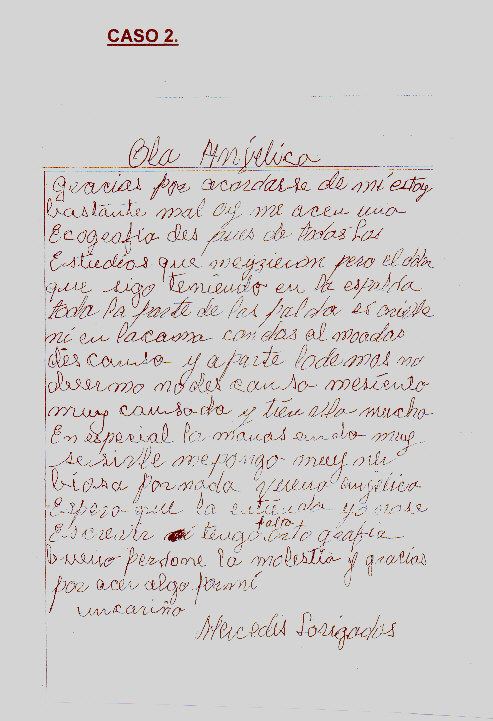 CASO 2.
Ola Anjelica
gracias por acordarse de mi estoy
bastante mal oy me acen una
Ecogrofia des pues de todas las
Estudios que meyzieron pero el dolor
que sigo teniendo en la espalda
toda la parte de las palda es orible
ni en lacama con dos al moadas
descanso y a parte lodemas no
duermo no des canso mesiento
muy cansada y tiemblo mucho
En espesial la manos ando muy
sensible mepongo muy ner
biosa por nada bueno angelica
Espero que la entienda yo nose
Escrevir mi tengo falta orto grafia
bueno perdone la molestia y gracias
por acer algo por mi
un cariño
Mercedis Sorigados